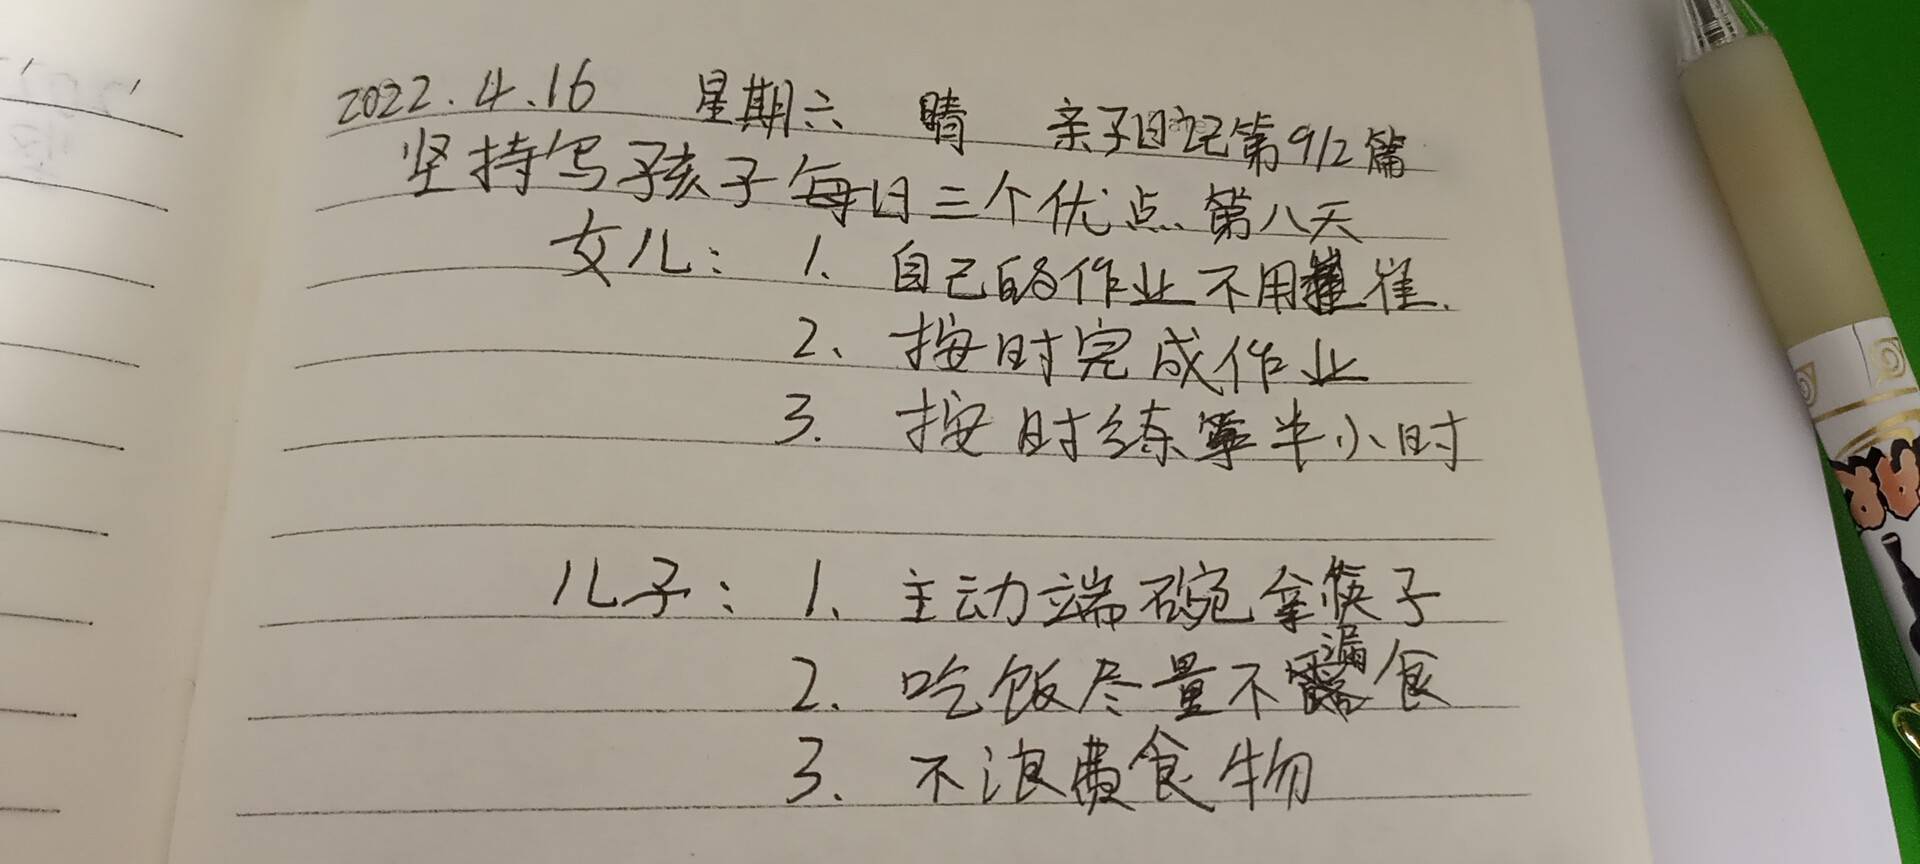 2022.4.16 星期六 晴 亲子日记第912篇
坚持写孩子每日三个优点.第八天
女儿：1、自己的作业不用催.
2、按时完成作业
3. 按时练字半小时
儿子：1、主动端碗拿筷子
2. 吃饭尽量不漏食
3. 不浪费食物